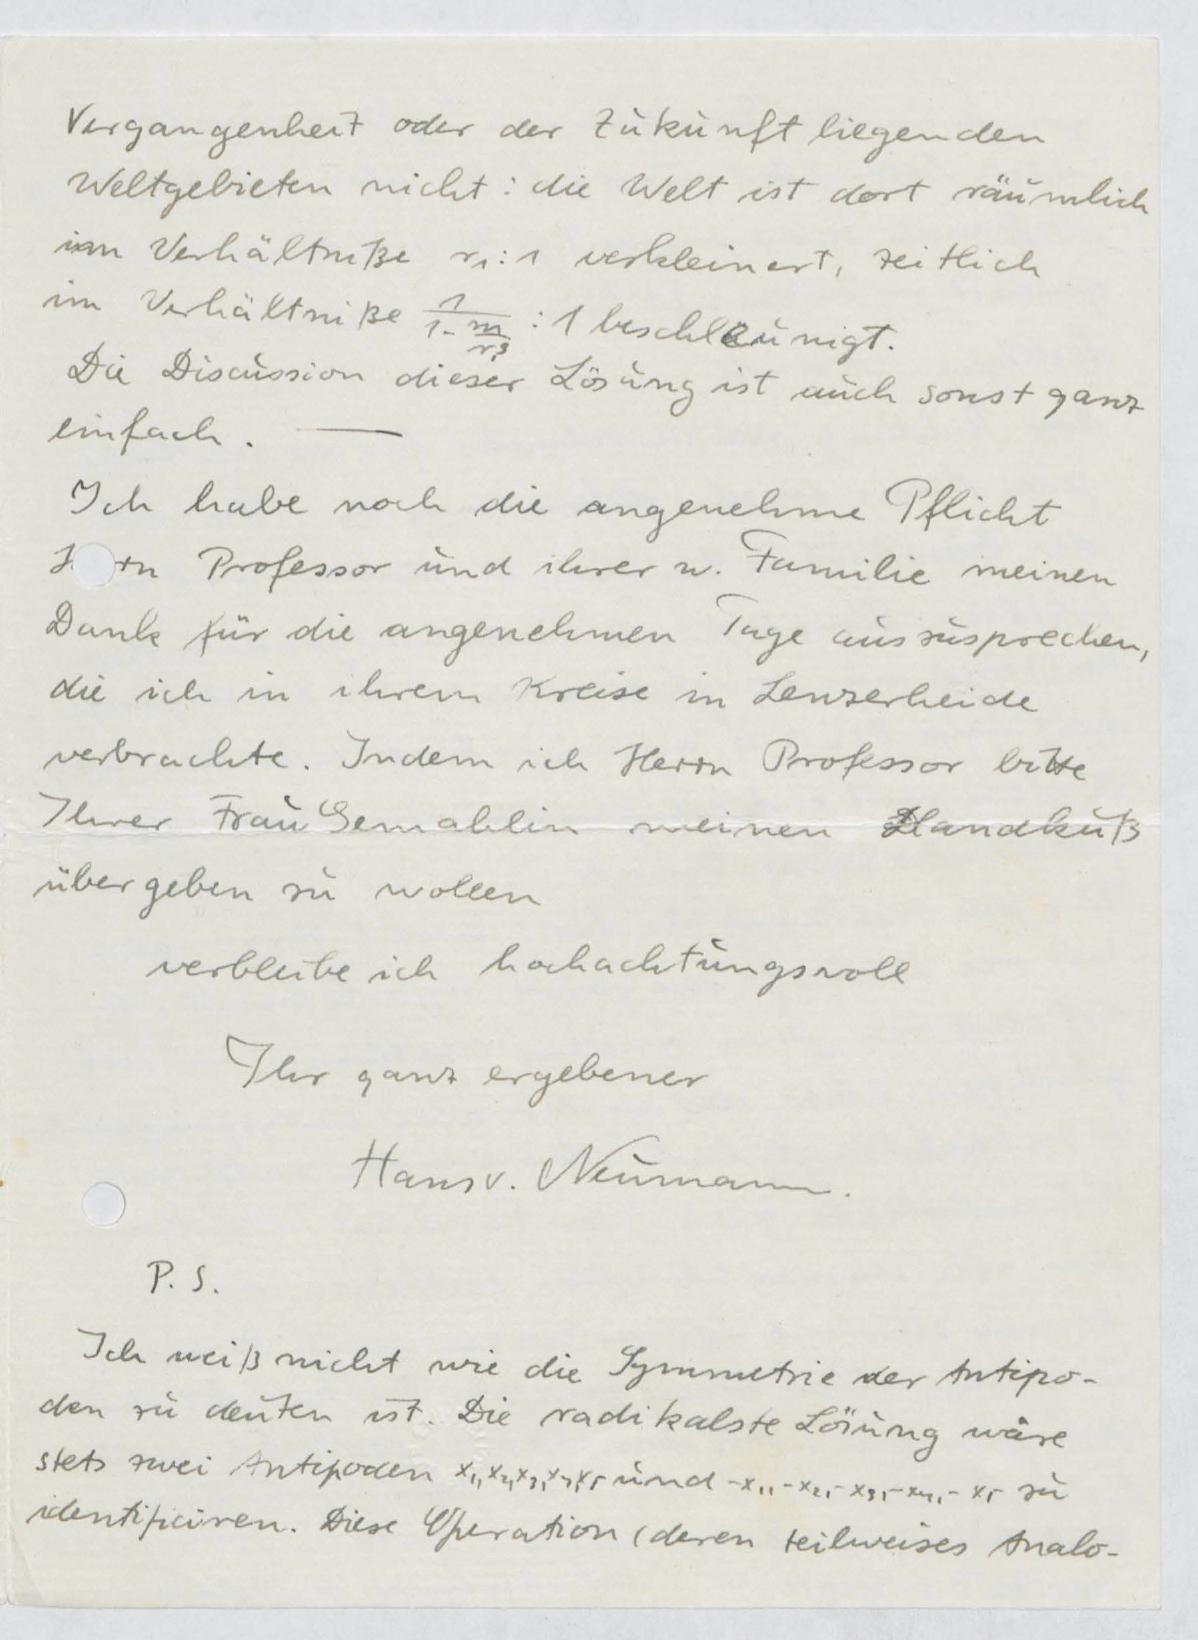 Vergangenheit oder der Zukunft liegenden
Weltgebieten nicht: die Welt ist dort räumlich
im Verhältniße r₁:1 verkleinert, zeitlich
im Verhältniße 1/(1-m/r₁³) : 1 beschleunigt.
Die Discussion dieser Lösung ist auch sonst ganz
einfach. —
Ich habe noch die angenehme Pflicht
H rn Professor und ihrer w. Familie meinen
Dank für die angenehmen Tage auszusprechen,
die ich in ihrem Kreise in Lenzerheide
verbrachte. Indem ich Herrn Professor bitte
Ihrer Frau Gemahlin meinen Handkuß
übergeben zu wollen
verbleibe ich hochachtungsvoll
Ihr ganz ergebener
Hans v. Neumann.
P. S.
Ich weiß nicht wie die Symmetrie der Antipo-
den zu deuten ist. Die radikalste Lösung wäre
stets zwei Antipoden x₁,x₂,x₃,x₄,x₅ und -x₁,-x₂,-x₃,-x₄,-x₅ zu
identificiren. Diese Operation (deren teilweises Analo-